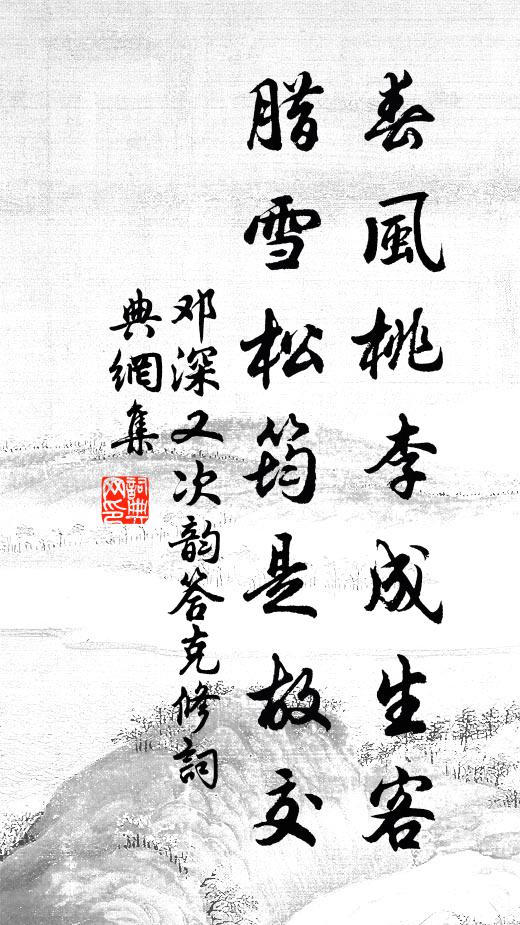 春風桃李成生客
腊雪松筠是故交
邓深又次韵答克修詞
典網集
詞典网印